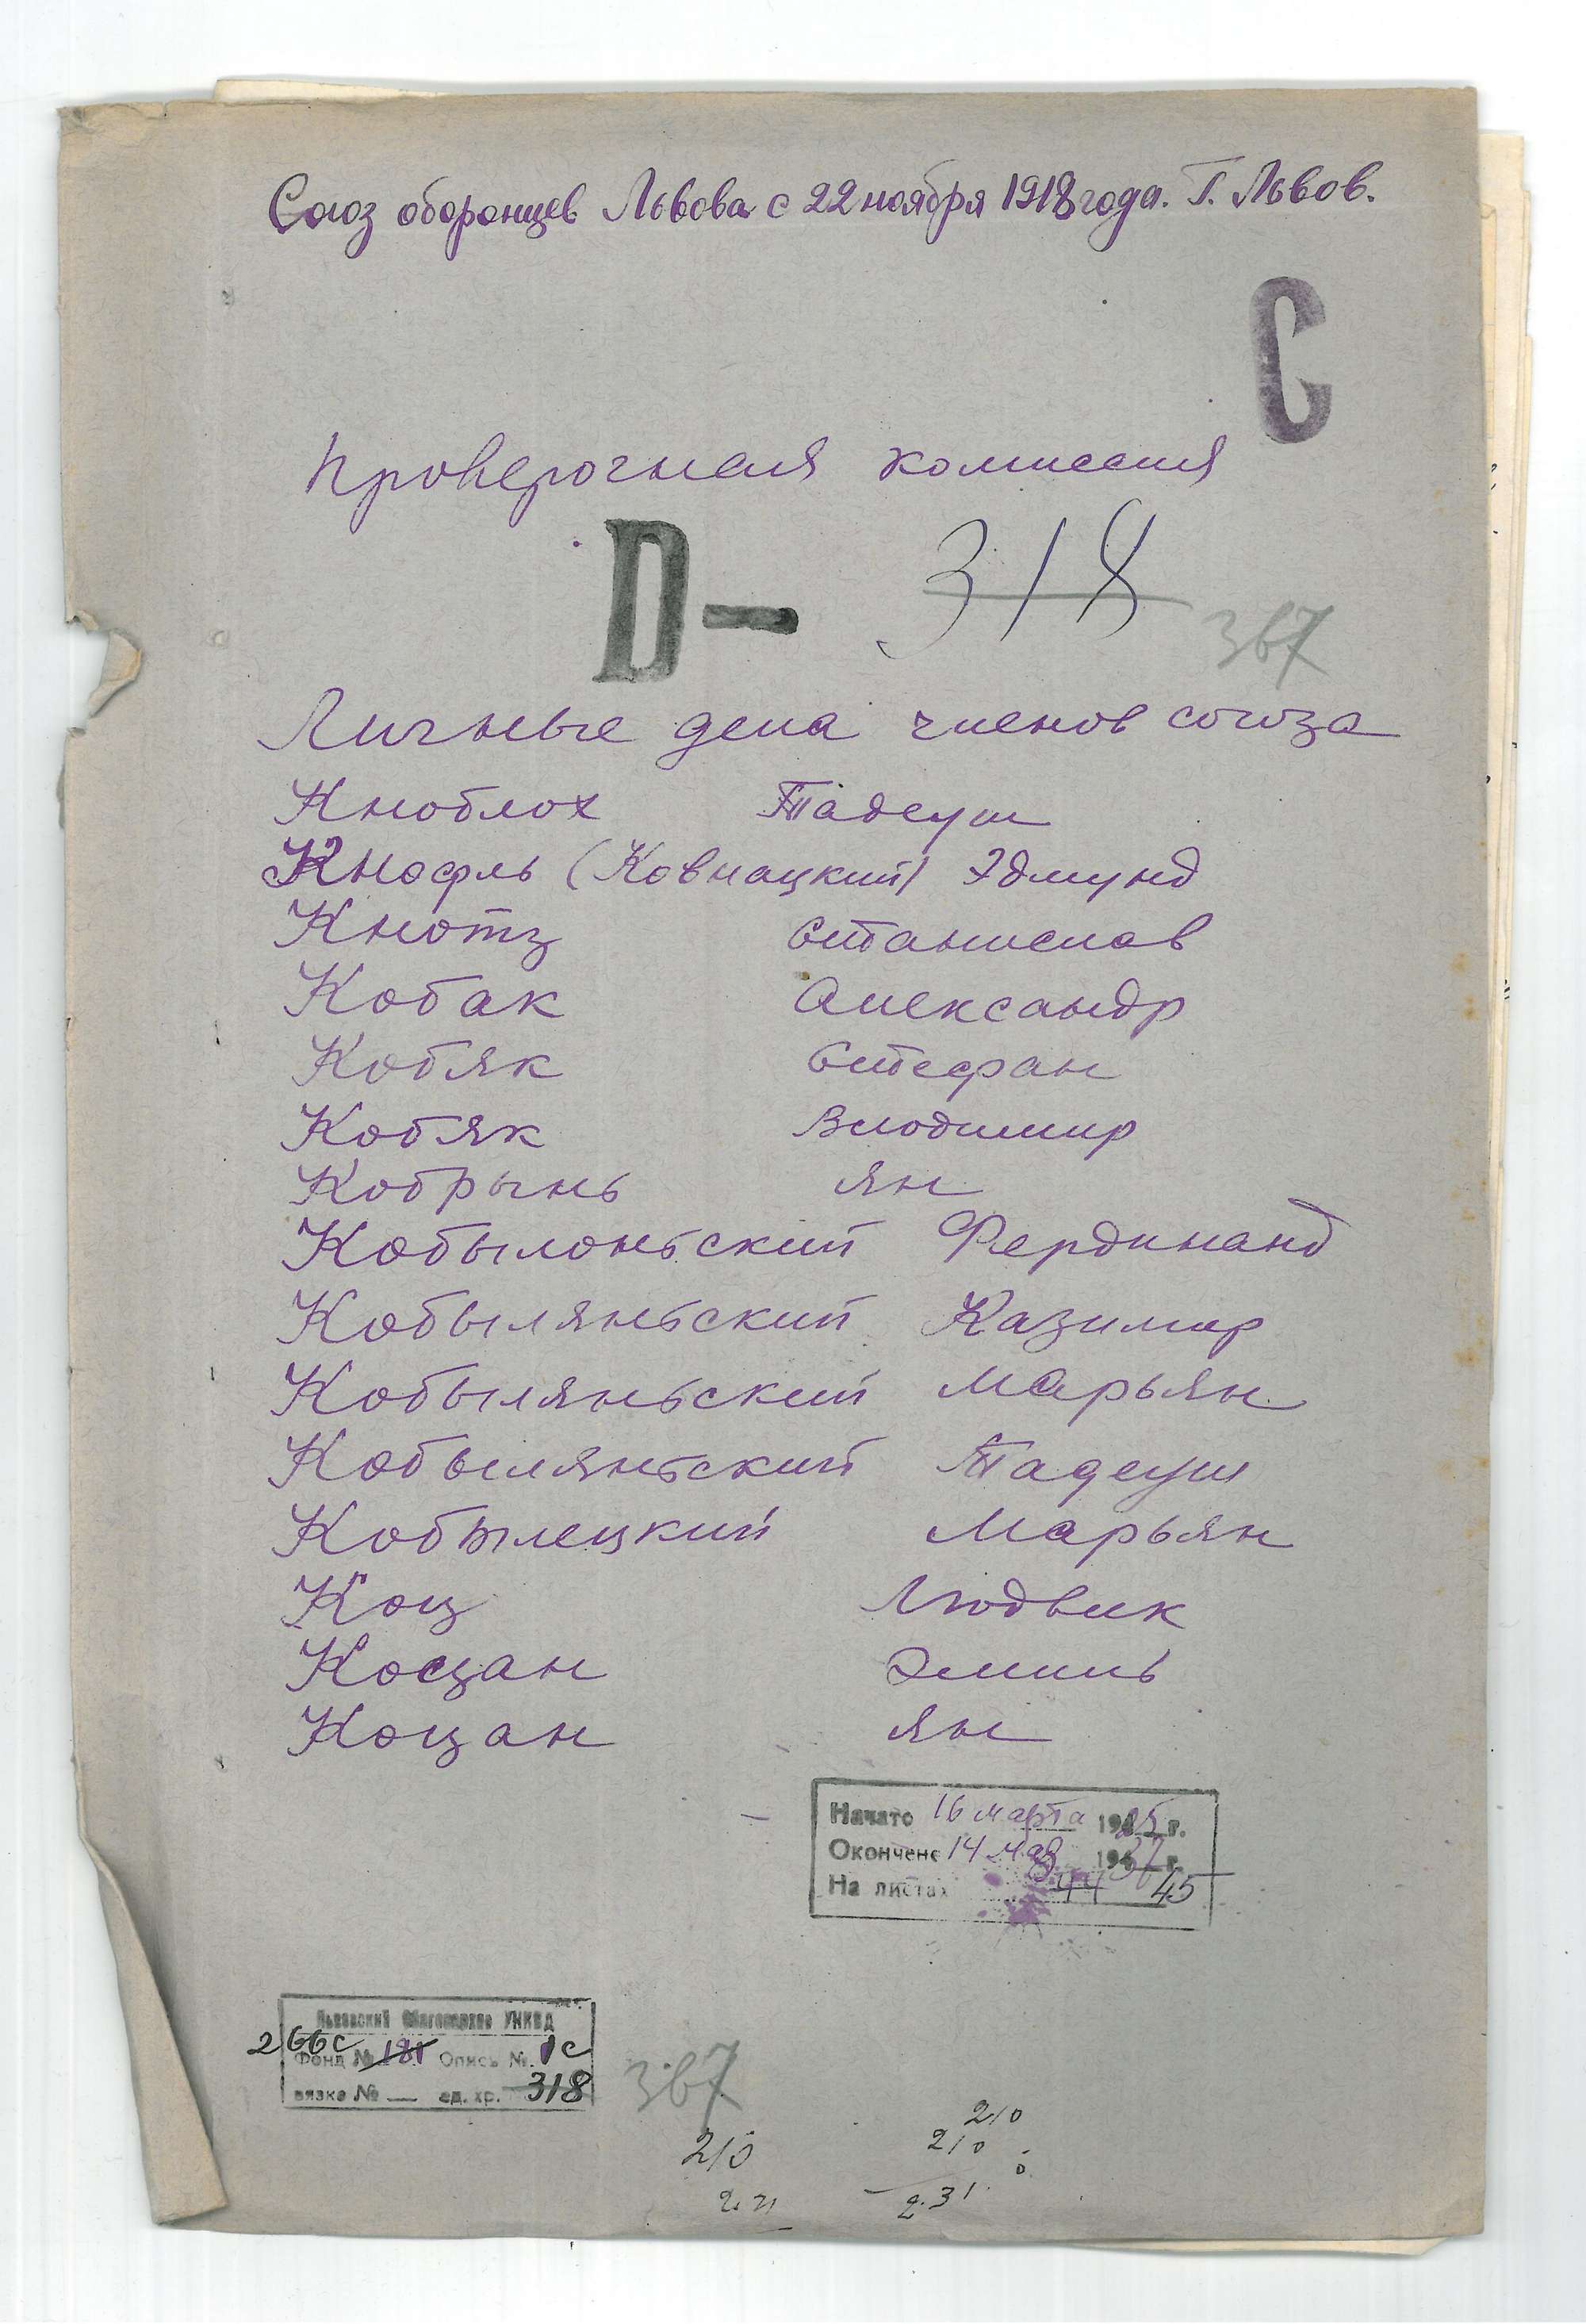 Союз оборонцев Львова с 22 ноября 1918 года. г. Львов.
С
Проверочная комиссия
D— 318
367
Личные дела членов союза
Кноблох Тадеуш
Кнофль (Ковнацкий) Эдмунд
Кнотз Станислав
Кобак Александр
Кобяк Стефан
Кобяк Влодимир
Кобрынь Ян
Кобылоньский Фердинанд
Кобыляньский Казимир
Кобыляньский Марьян
Кобыляньский Тадеуш
Кобылецкий Марьян
Коц Людвик
Коцан Эмиль
Коцан Ян
Начато 16 марта 1925 г.
Окончено 14 мая 1937 г.
На листах 44 45
Львовский Облгосархив УНКВД
266с Фонд № 181 Опись № 1с
вязка № — ед. хр. 318
367
210
210
210
0
231